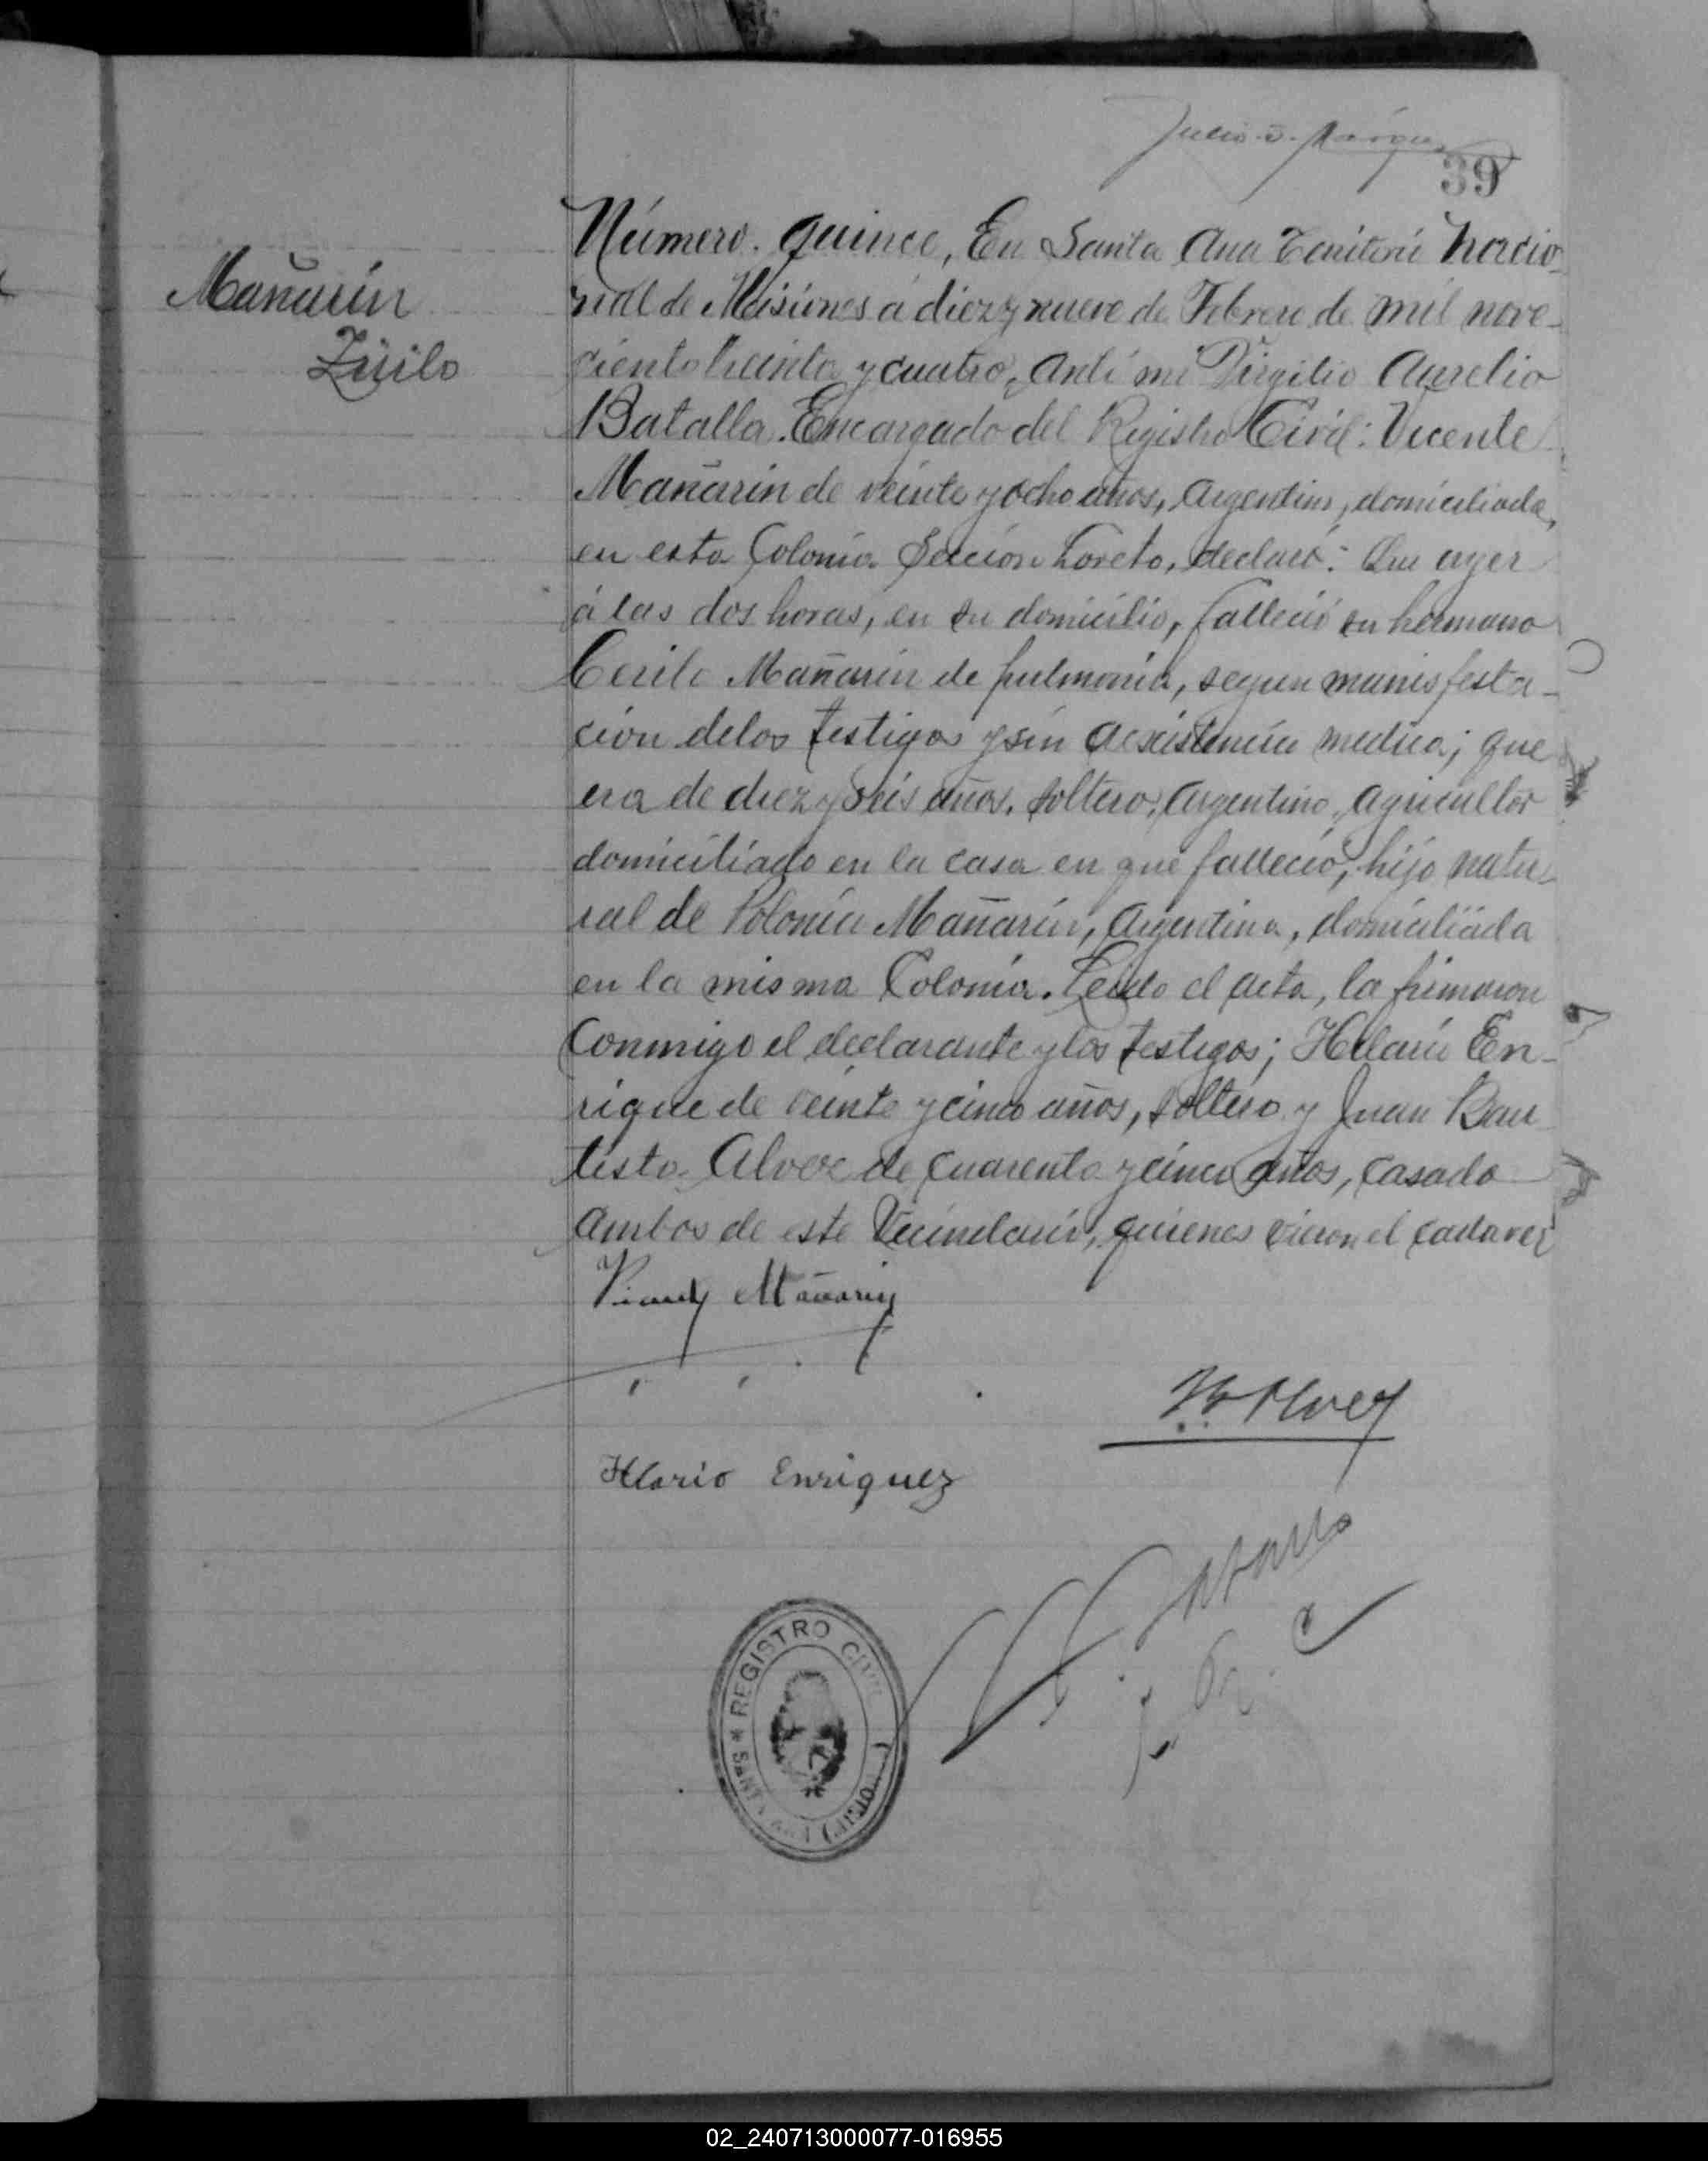 39
Mañarín
Zoilo
Número. quince, En Santa Ana Territorio Nacio-
nal de Misiones á diez y nueve de Febrero de mil nove-
ciento treinta y cuatro, Anté mi Virgilio Aurelio
Batalla. Encargado del Registro Civil: Vicente
Mañarin de veinte y ocho años, Argentino, domiciliado,
en esta Colonia Sección Loreto, declaró: Que ayer
á las dos horas, en su domicilio, falleció su hermano
Mañarin de pulmonía, segun manisfesta-
ción delos testigos y sin medica; que
era de diez y seis años, soltero, Argentino, agricultor
domiciliado en la casa en que falleció, hijo natu-
ral de Polonia Mañarin, Argentina, domiciliada
en la misma Colonia. Leido el acta, la firmaron
Conmigo el declarante y los testigos; Hilario En-
rique de veinte y cinco años, soltero y Juan Bau
tista Alvez de cuarenta y cinco años, casado
Ambos de este Vecindario, quienes vieron el cadaver
Mañarin
Alvez
Hilario Enriquez
Batalla
REGISTRO CIVIL
SANTA ANA (MISIONES)
02_240713000077-016955